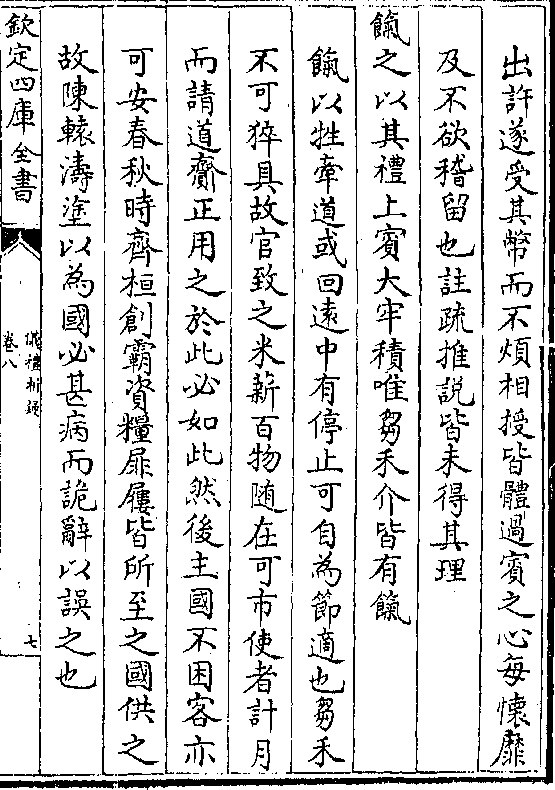 出許遂受其幣而不煩相授皆體過賓之心每懷靡
及不欲稽留也註疏推說皆未得其理
餼之以其禮上賓大牢積唯芻禾介皆有餼
餼以牲牽道或回遠中有停止可自為節適也芻禾
不可猝具故官致之米薪百物隨在可市使者計月
而請道齎正用之於此必如此然後主國不困客亦
可安春秋時齊桓創霸資糧屝屨皆所至之國供之
故陳轅濤塗以為國必甚病而詭辭以誤之也
欽定四庫全書
儀禮析疑
卷八
七